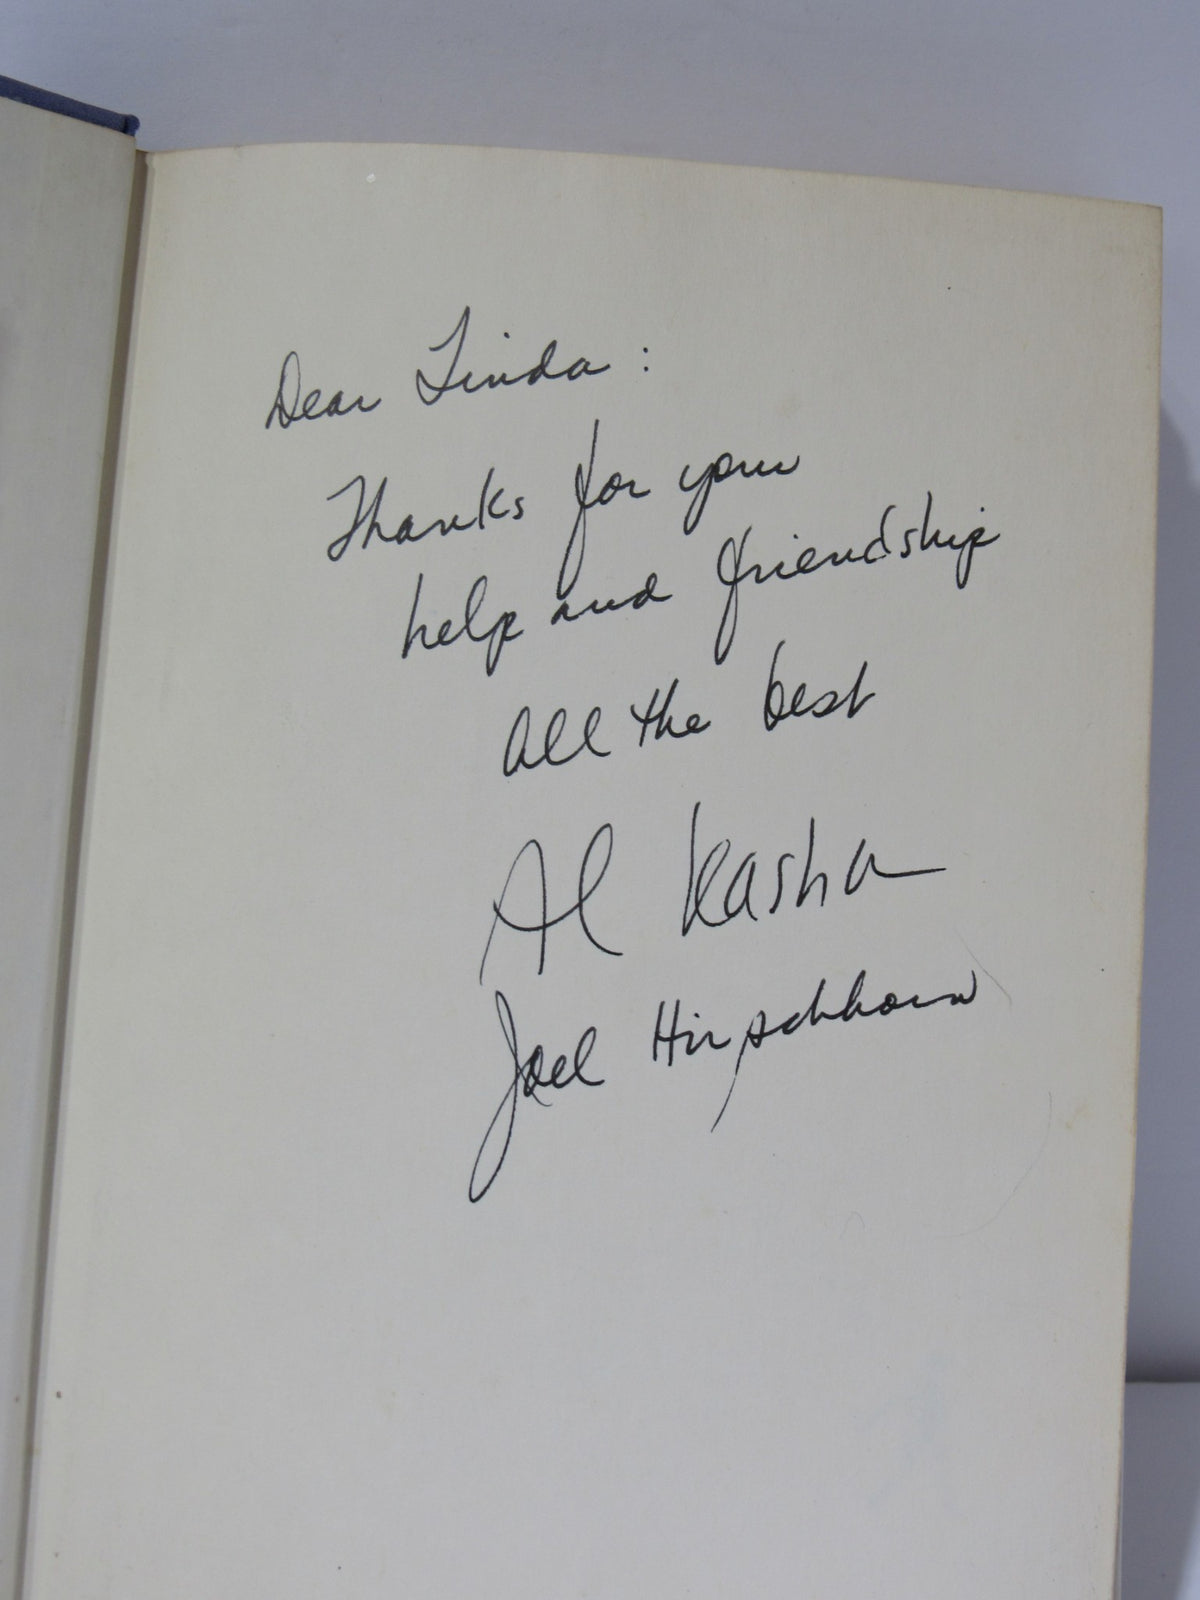 Dear Linda:
Thanks for your
help and friendship
All the best
Al Kasha
Joel Hirschhorn